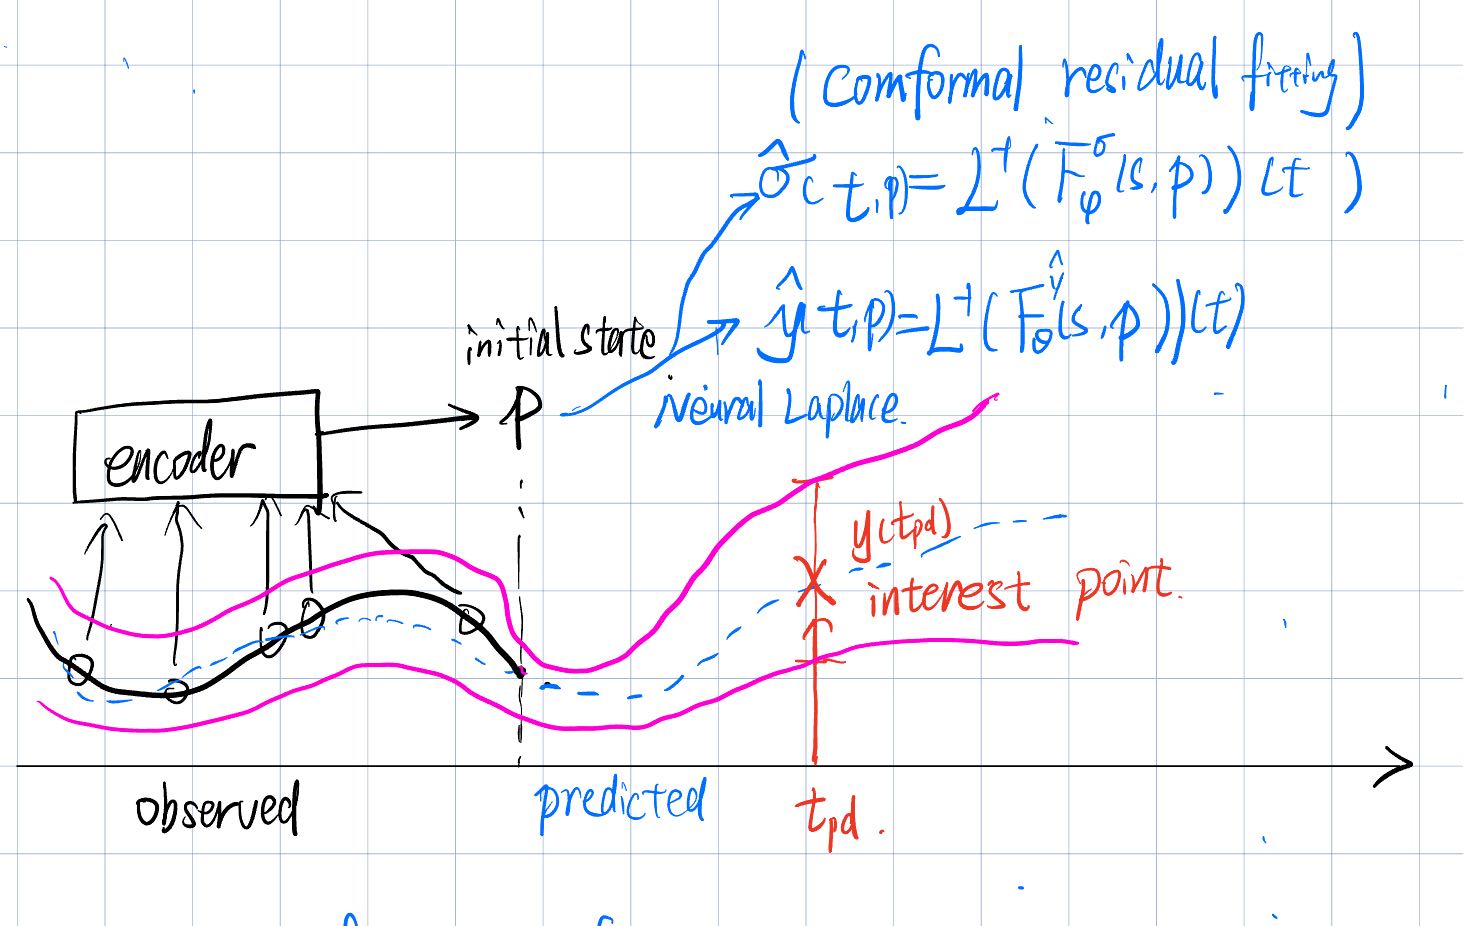 (Comformal residual fitting)
σ̂(t,p)=L⁻¹(F_φ^σ(s,p))(t )
ŷ(t,p)=L⁻¹(F_θ^ŷ(s,p))(t)
initial state
p
Neural Laplace.
encoder
y(tpd)
interest point.
observed
predicted
tpd.